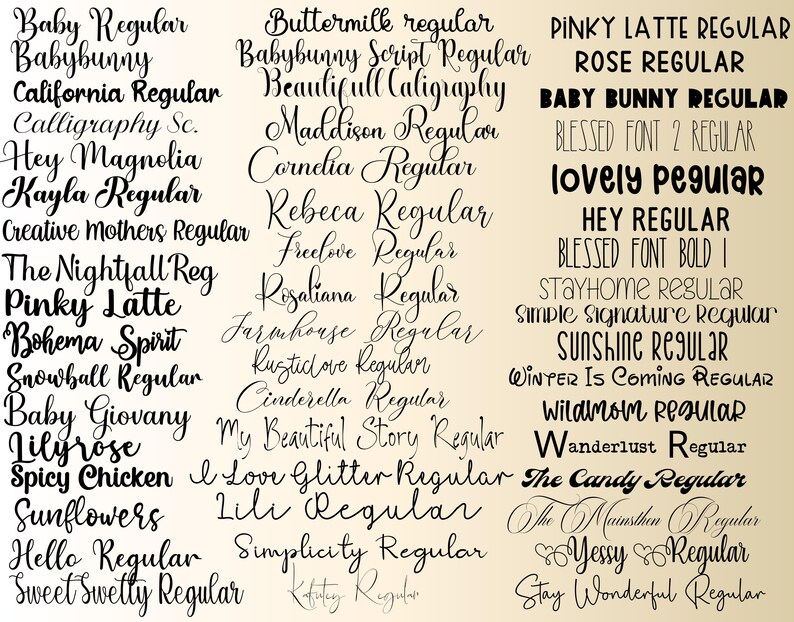 Baby Regular
Babybunny
California Regular
Calligraphy Sc.
Hey Magnolia
Kayla Regular
Creative Mothers Regular
The Nightfall Reg
Pinky Latte
Bohema Spirit
Snowball Regular
Baby Giovany
Lilyrose
Spicy Chicken
Sunflowers
Hello Regular
Sweet Swetty Regular
Buttermilk regular
Babybunny Script Regular
Beautifull Caligraphy
Maddison Regular
Cornelia Regular
Rebeca Regular
Freelove Regular
Rosaliana Regular
Farmhouse Regular
Rusticlove Regular
Cinderella Regular
My Beautiful Story Regular
I Love Glitter Regular
Lili Regular
Simplicity Regular
Regular
PINKY LATTE REGULAR
ROSE REGULAR
BABY BUNNY REGULAR
BLESSED FONT 2 REGULAR
lovely pegular
HEY REGULAR
BLESSED FONT BOLD 1
STAYHOME REGULAR
Simple Signature Regular
SUNSHINE REGULAR
Winter Is Coming Regular
WILDMOM REGULAR
Wanderlust Regular
The Candy Regular
The Mainsthen Regular
Yessy Regular
Stay Wonderful Regular